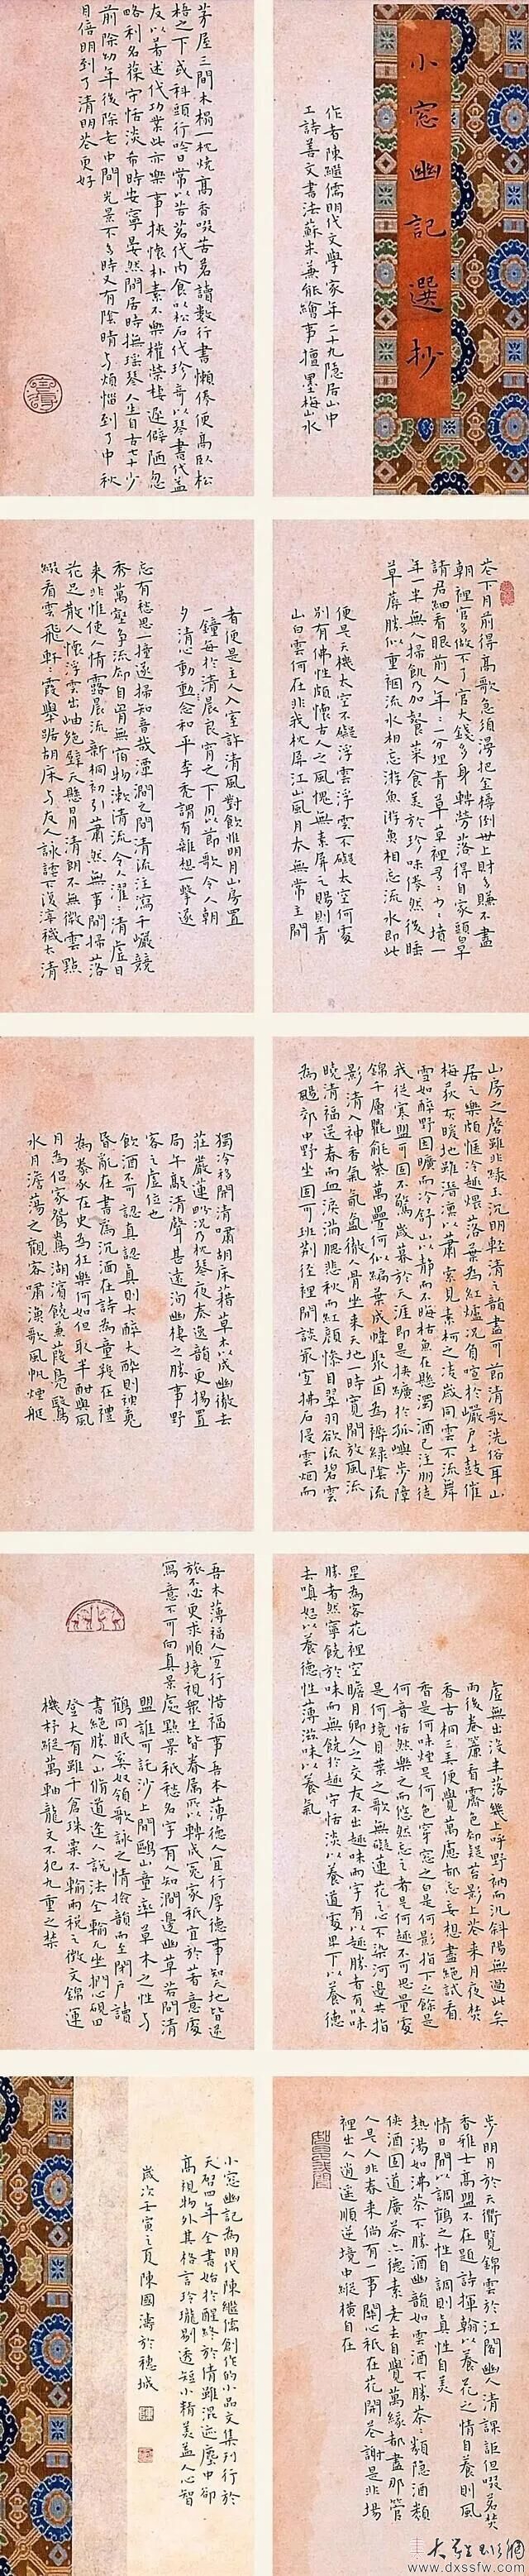 小窓幽記選抄
作者陳繼儒明代文學家年二十九隱居山中
工詩善文書法蘇米兼能繪事擅墨梅山水
茅屋三間木榻一枕燒高香啜苦茗讀數行書懶倦便高臥松
梧之下或科頭行吟日常以苦茗代肉食以松石代珍奇以琴書代益
友以著述代功業此亦樂事挾懷朴素不樂權榮棲遲僻陋忽
略利名葆守恬淡希時安寧晏然閒居時撫瑤琴人生自古七十少
前除幼年後除老中間光景不多時又有陰晴与煩惱到了中秋
月倍明到了清明花更好
花下月前得高歌急須漫把金樽倒世上財多賺不盡
朝裡官多做不了官大錢多身轉勞落得自家頭早
請君細看眼前人年二一分埋青草草裡多二少二墳一
年一半無人掃飢乃加餐菜食美於珍味倦然後睡
草蓐勝似重裀流水相忘游魚游魚相忘流水即此
便是天機太空不礙浮雲浮雲不礙太空何處
別有佛性頗懷古人之風愧無素屏之賜則青
山白雲何在非我枕屏江山風月本無常主閒
者便是主人入室許清風對飲惟明月山房置
一鐘每於清晨良宵之下用以節歌令人朝
夕清心動念和平李禿謂有雜想一擊遂
忘有愁思一撞遂掃知音哉澗之間清流注瀉千巖競
秀萬壑爭流却自胸無宿物漱清流令人濯二清虛日
來非惟使人情露晨流新桐初引蕭然無事閒掃落
花足散人懷浮雲出岫絕壁天懸日月清朗不無微雲點
綴看雲飛軒二霞舉踞胡床与友人詠謔不復滓穢太清
山房之磬雖非綠玉沉明輕清之韻盡可節清歌洗俗耳山
居之樂頗愜冷趣煨落葉為紅爐況負暄於巖戶土鼓催
梅荻灰暖地雖潛凜以蕭索見素柯之凌歲同雲不流舞
雪如醉野因曠而冷舒山以靜而不晦枯魚在懸濁酒已注朋徒
我從寒盟可固不驚歲暮於天涯即是挾纊於孤嶼步障
錦千層氍毹紫萬疊何似編葉成幃聚茵為褥綠陰流
影清入神香氣氤氳徹人骨坐來天地一時寬閒放風流
曉清福送春而血淚滿腮悲秋而紅顏慘目翠羽欲流碧雲
為颺郊中野坐固可班荊徑裡閒談最宜拂石侵雲烟而
獨冷移開清嘯胡床藉草木以成幽徹去
莊嚴蓮界況乃枕琴夜奏逸韻更揚置
局午敲清聲甚遠洵幽棲之勝事野
客之虛位也
飲酒不可認真認真則大醉大醉則神魂
昏亂在書為沉湎在詩為童羖在禮
為豢豕在史為狂藥何如但取半酣與風
月為侶家鴛鴦湖濱饒蒹葭鳧鷖
水月澹蕩之觀客嘯漁歌風帆煙艇
虛無出沒半落几上呼野衲而泛斜陽無過此矣
雨後卷簾看霽色却疑苔影上花來月夜焚
香古桐三弄便覺萬慮都忘妄想盡絕試看
香是何味煙是何色穿窓之白是何影指下之餘是
何音恬然樂之而悠然忘之者是何趣不可思量處
是何境月葉之歌無礙蓮花之心不染河邊共指
星為客花裡空瞻月卿人之交友不出趣味兩字有以趣勝者有以味
勝者然寧饒於味而無饒於趣守恬淡以養道處卑下以養德
去嗔怒以養德性薄滋味以養氣
吾本薄福人宜行惜福事吾本薄德人宜行厚德事知天地皆逆
旅不必更求順境視衆生皆眷屬所以轉成冤家祇宜於著意處
寫意不可向真景處點景祇愁名字有人知澗邊幽草若問清
盟誰可託沙上閒鷗山童率草木之性与
鶴同眠奚奴領歌詠之情撿韻而至閉戶讀
書絕勝入山脩道逢人說法全輸兀坐捫心硯田
登大有雖千倉珠粟不輸兩稅之徵文錦運
機杼縱萬軸龍文不犯九重之禁
步明月於天衢覽錦雲於江閣幽人清課詎但啜茗焚
香雅士高盟不在題詩揮翰以養花之情自養則風
情日閒以調鶴之性自調則真性自美
熱湯如沸茶不勝酒幽韻如雲酒不勝茶二類隱酒類
俠酒固道廣茶亦德素老去自覺萬緣都盡那管
人是人非春來倘有一事關心祇在花開花謝是非場
裡出人逍遥順逆境中縱橫自在
小窓幽記為明代陳繼儒創作的小品文集刊行於
天啓四年全書始於醒終於倩雖混迹塵中卻
高視物外其格言玲瓏剔透短小精美益人心智
歲次壬寅之夏陳國濤於穗城
大學生收藏網
www.dxssfw.com